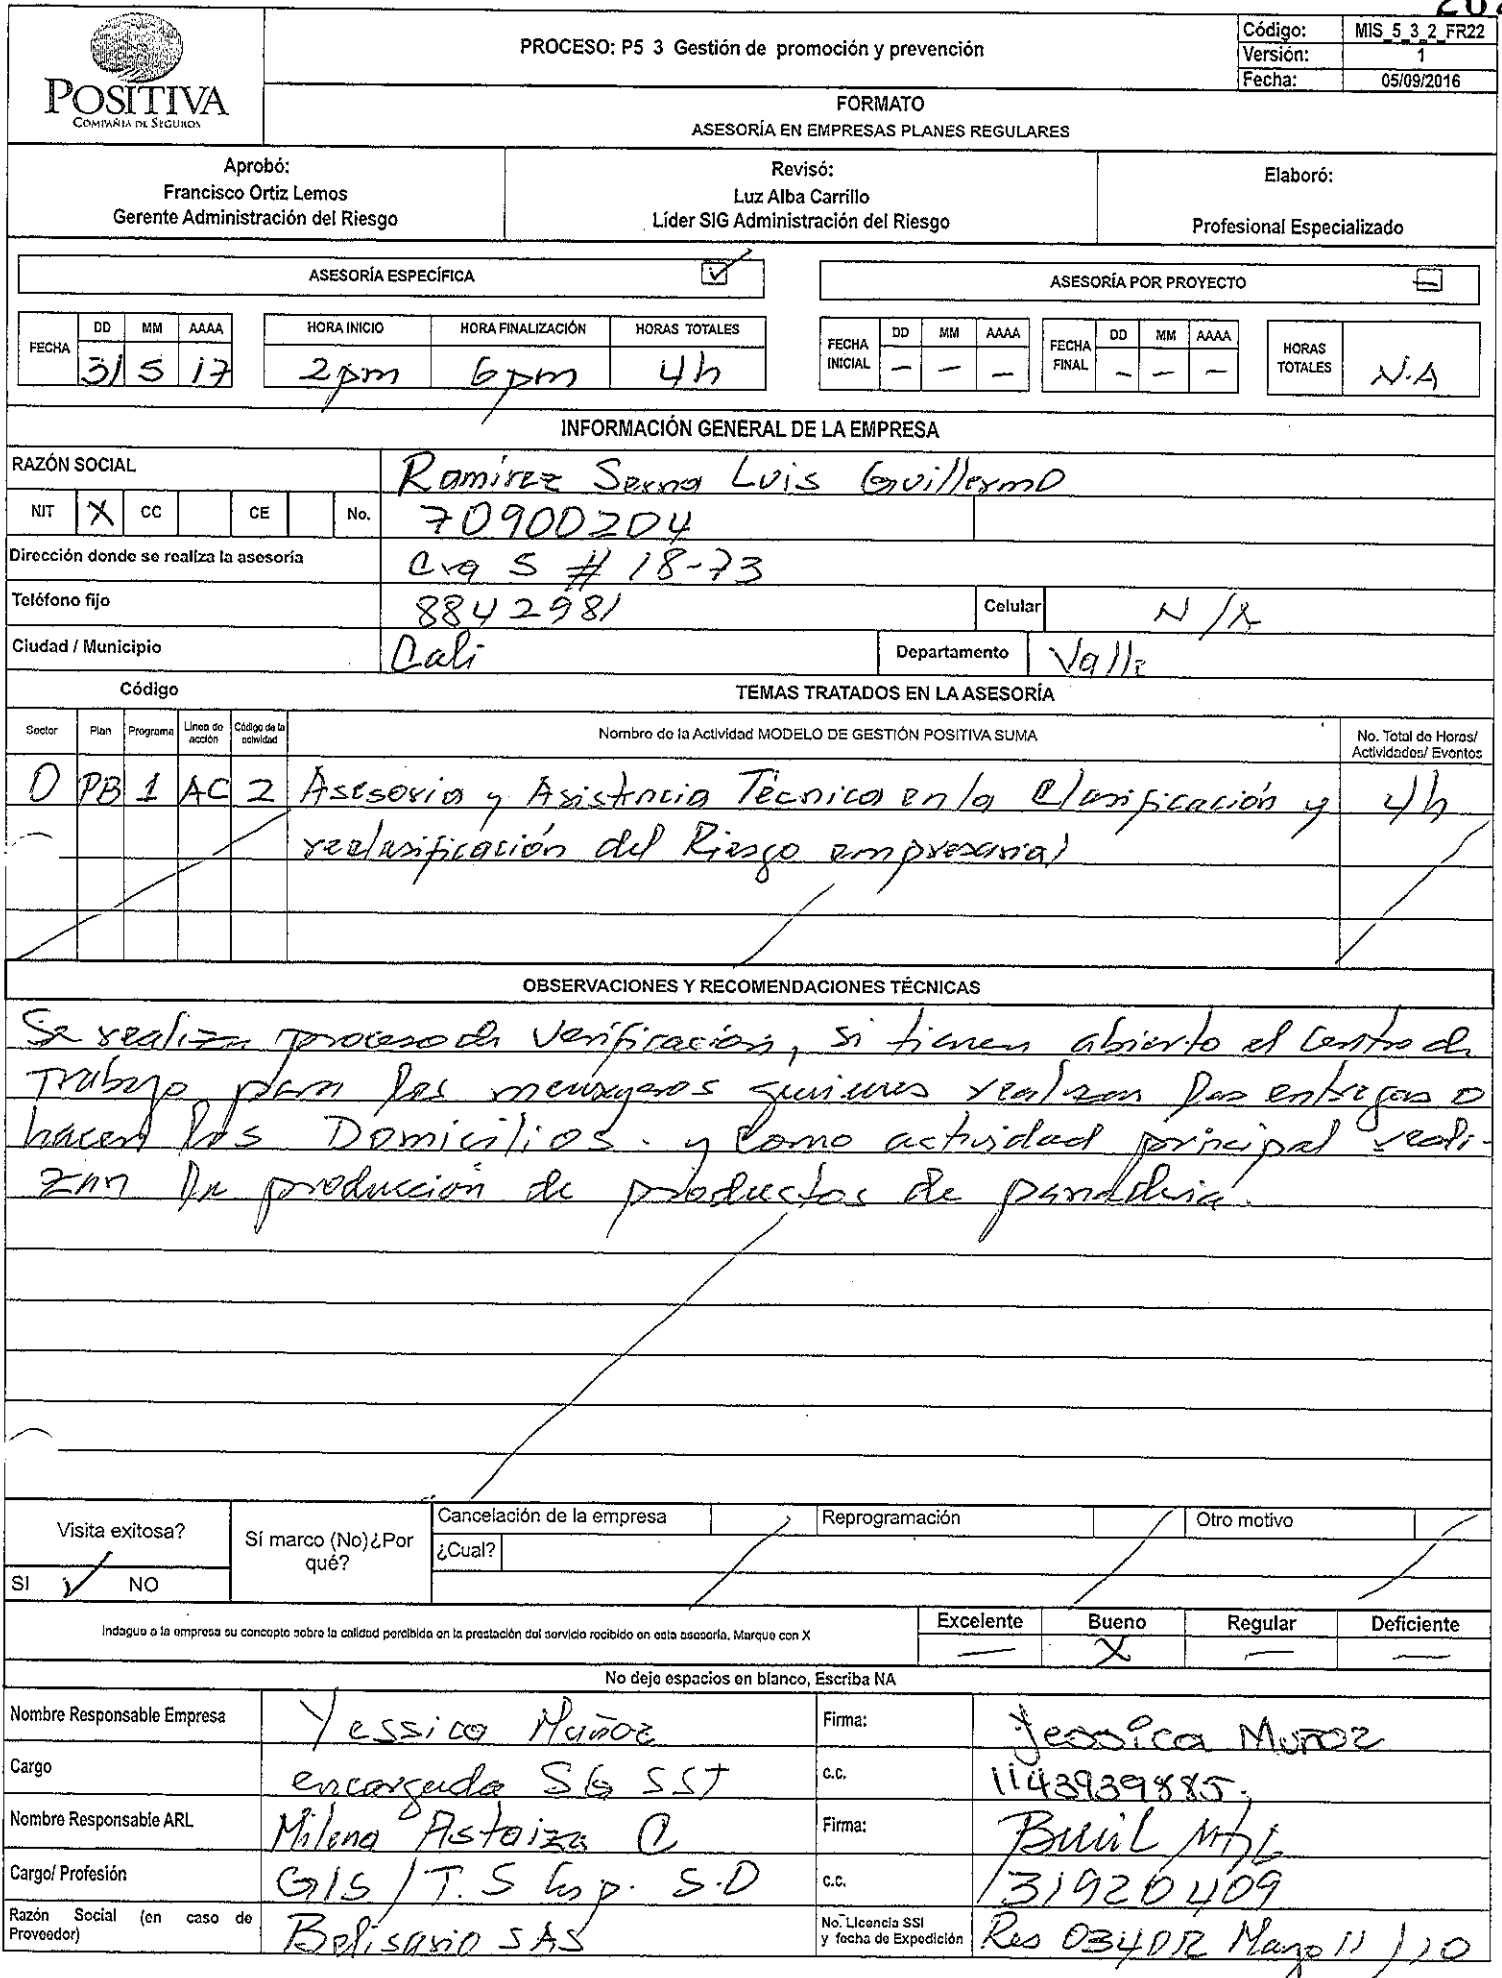 POSITIVA
COMPAÑIA DE SEGUROS
PROCESO: P5 3 Gestión de promoción y prevención
Código: MIS_5_3_2_FR22
Versión: 1
Fecha: 05/09/2016
FORMATO
ASESORÍA EN EMPRESAS PLANES REGULARES
Aprobó:
Francisco Ortiz Lemos
Gerente Administración del Riesgo
Revisó:
Luz Alba Carrillo
Líder SIG Administración del Riesgo
Elaboró:
Profesional Especializado
ASESORÍA ESPECÍFICA
ASESORÍA POR PROYECTO
FECHA DD MM AAAA
31 5 17
HORA INICIO HORA FINALIZACIÓN HORAS TOTALES
2pm 6pm 4h
FECHA INICIAL DD MM AAAA
— — —
FECHA FINAL DD MM AAAA
— — —
HORAS TOTALES N.A
INFORMACIÓN GENERAL DE LA EMPRESA
RAZÓN SOCIAL Ramirez Serna Luis Guillermo
NIT X CC CE No. 70900204
Dirección donde se realiza la asesoría Cra 5 # 18-73
Teléfono fijo 8842981 Celular N/A
Ciudad / Municipio Cali Departamento Valle
Código TEMAS TRATADOS EN LA ASESORÍA
Sector Plan Programa Linea de acción Código de la actividad Nombre de la Actividad MODELO DE GESTIÓN POSITIVA SUMA No. Total de Horas/ Actividades/ Eventos
0 PB 1 AC 2 Asesoria y Asistencia Técnica en la Clasificación y 4h
reclasificación del Riesgo empresarial
OBSERVACIONES Y RECOMENDACIONES TÉCNICAS
Se realiza proceso de verificación, si tienen abierto el centro de
Trabajo para los mensajeros quienes realizan las entregas o
hacen los Domicilios. y como actividad principal reali-
zan la producción de productos de panaderia.
Visita exitosa?
SI ✓ NO
Sí marco (No)¿Por qué?
Cancelación de la empresa Reprogramación Otro motivo
¿Cual?
Indague a la empresa su concepto sobre la calidad percibida en la prestación del servicio recibido en esta asesoría, Marque con X
Excelente Bueno Regular Deficiente
— X — —
No deje espacios en blanco, Escriba NA
Nombre Responsable Empresa Yessica Muñoz Firma: Yessica Muñoz
Cargo encargada SG SST C.C. 1143939885.
Nombre Responsable ARL Milena Astaiza C Firma:
Cargo/ Profesión GIS / T.S Esp. S.O C.C. 31920409
Razón Social (en caso de Proveedor) Belisario SAS No. Licencia SSI y fecha de Expedición Res 03402 Mayo 11 / 10